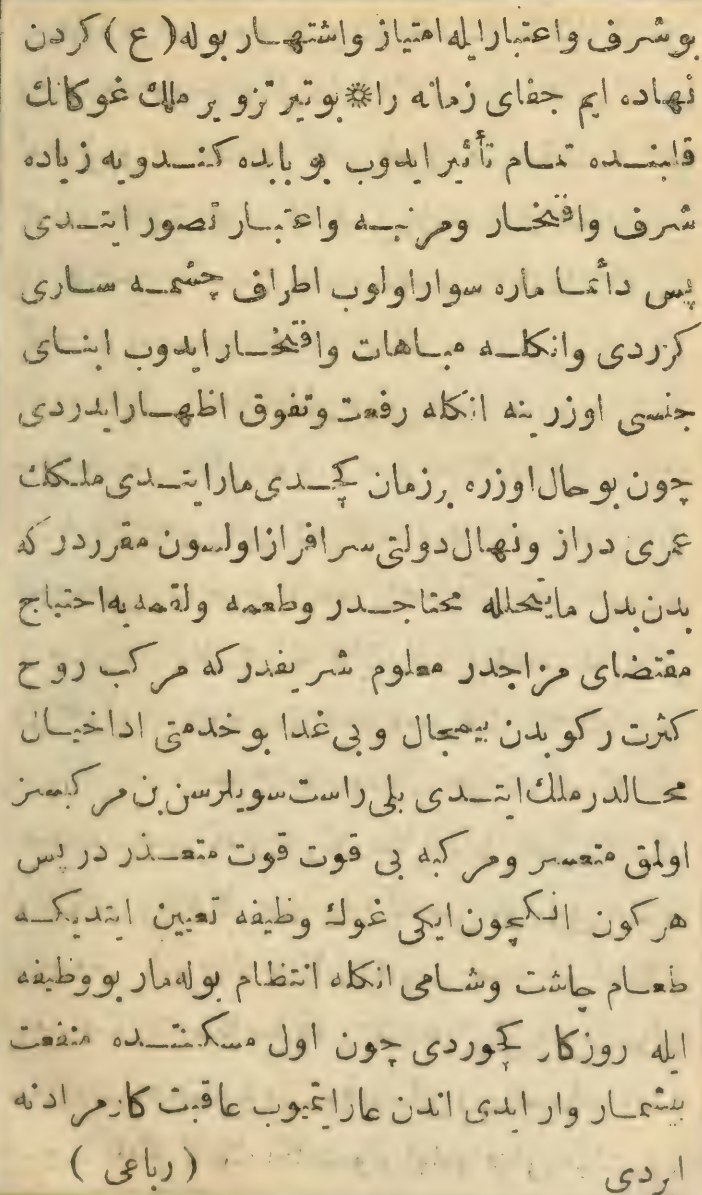 بو شرف واعتبار ايله امتياز واشتهار بوله (ع) كردن
نهاده ايم جفاى زمانه را ※ بو تير تزوير ملك غوكانك
قلبنده تمام تأثير ايدوب بو بابده كندويه زياده
شرف وافتخار ومرتبه واعتبار تصور ايتدى
پس دائما ماره سوار اولوب اطراف چشمه سارى
كزردى وانكله مباهات وافتخار ايدوب ابناى
جنسى اوزرينه انكله رفعت وتفوق اظهار ايدردى
چون بو حال اوزره بر زمان كچدى مار ايتدى ملكك
عمرى دراز ونهال دولتى سرافراز اولسون مقرردر كه
بدن بدل مايتحلله محتاجدر وطعمه ولقمه يه احتياج
مقتضاى مزاجدر معلوم شريفدر كه مركب روح
كثرت ركوبدن بيمجال وبى غدا بو خدمتى ادا خيال
محالدر ملك ايتدى بلى راست سويلرسن بن مركبسز
اولمق متعسر ومركبه بى قوت قوت متعذر در پس
هر كون انكچون ايكى غوك وظيفه تعيين ايتديكه
طعام چاشت وشامى انكله انتظام بوله مار بو وظيفه
ايله روزكار كچوردى چون اول مسكنتده منفعت
بيشمار وار ايدى اندن عار ايتميوب عاقبت كار مرادنه
ايردى (رباعى)